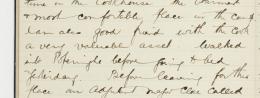 time in the Cookhouse the warmest
& most comfortable place in the camp
I am also good friend with the Cook
a very valuable asset walked
into before going to bed
yesterday. Before leaving for this
place an Adjutant Major Clee called